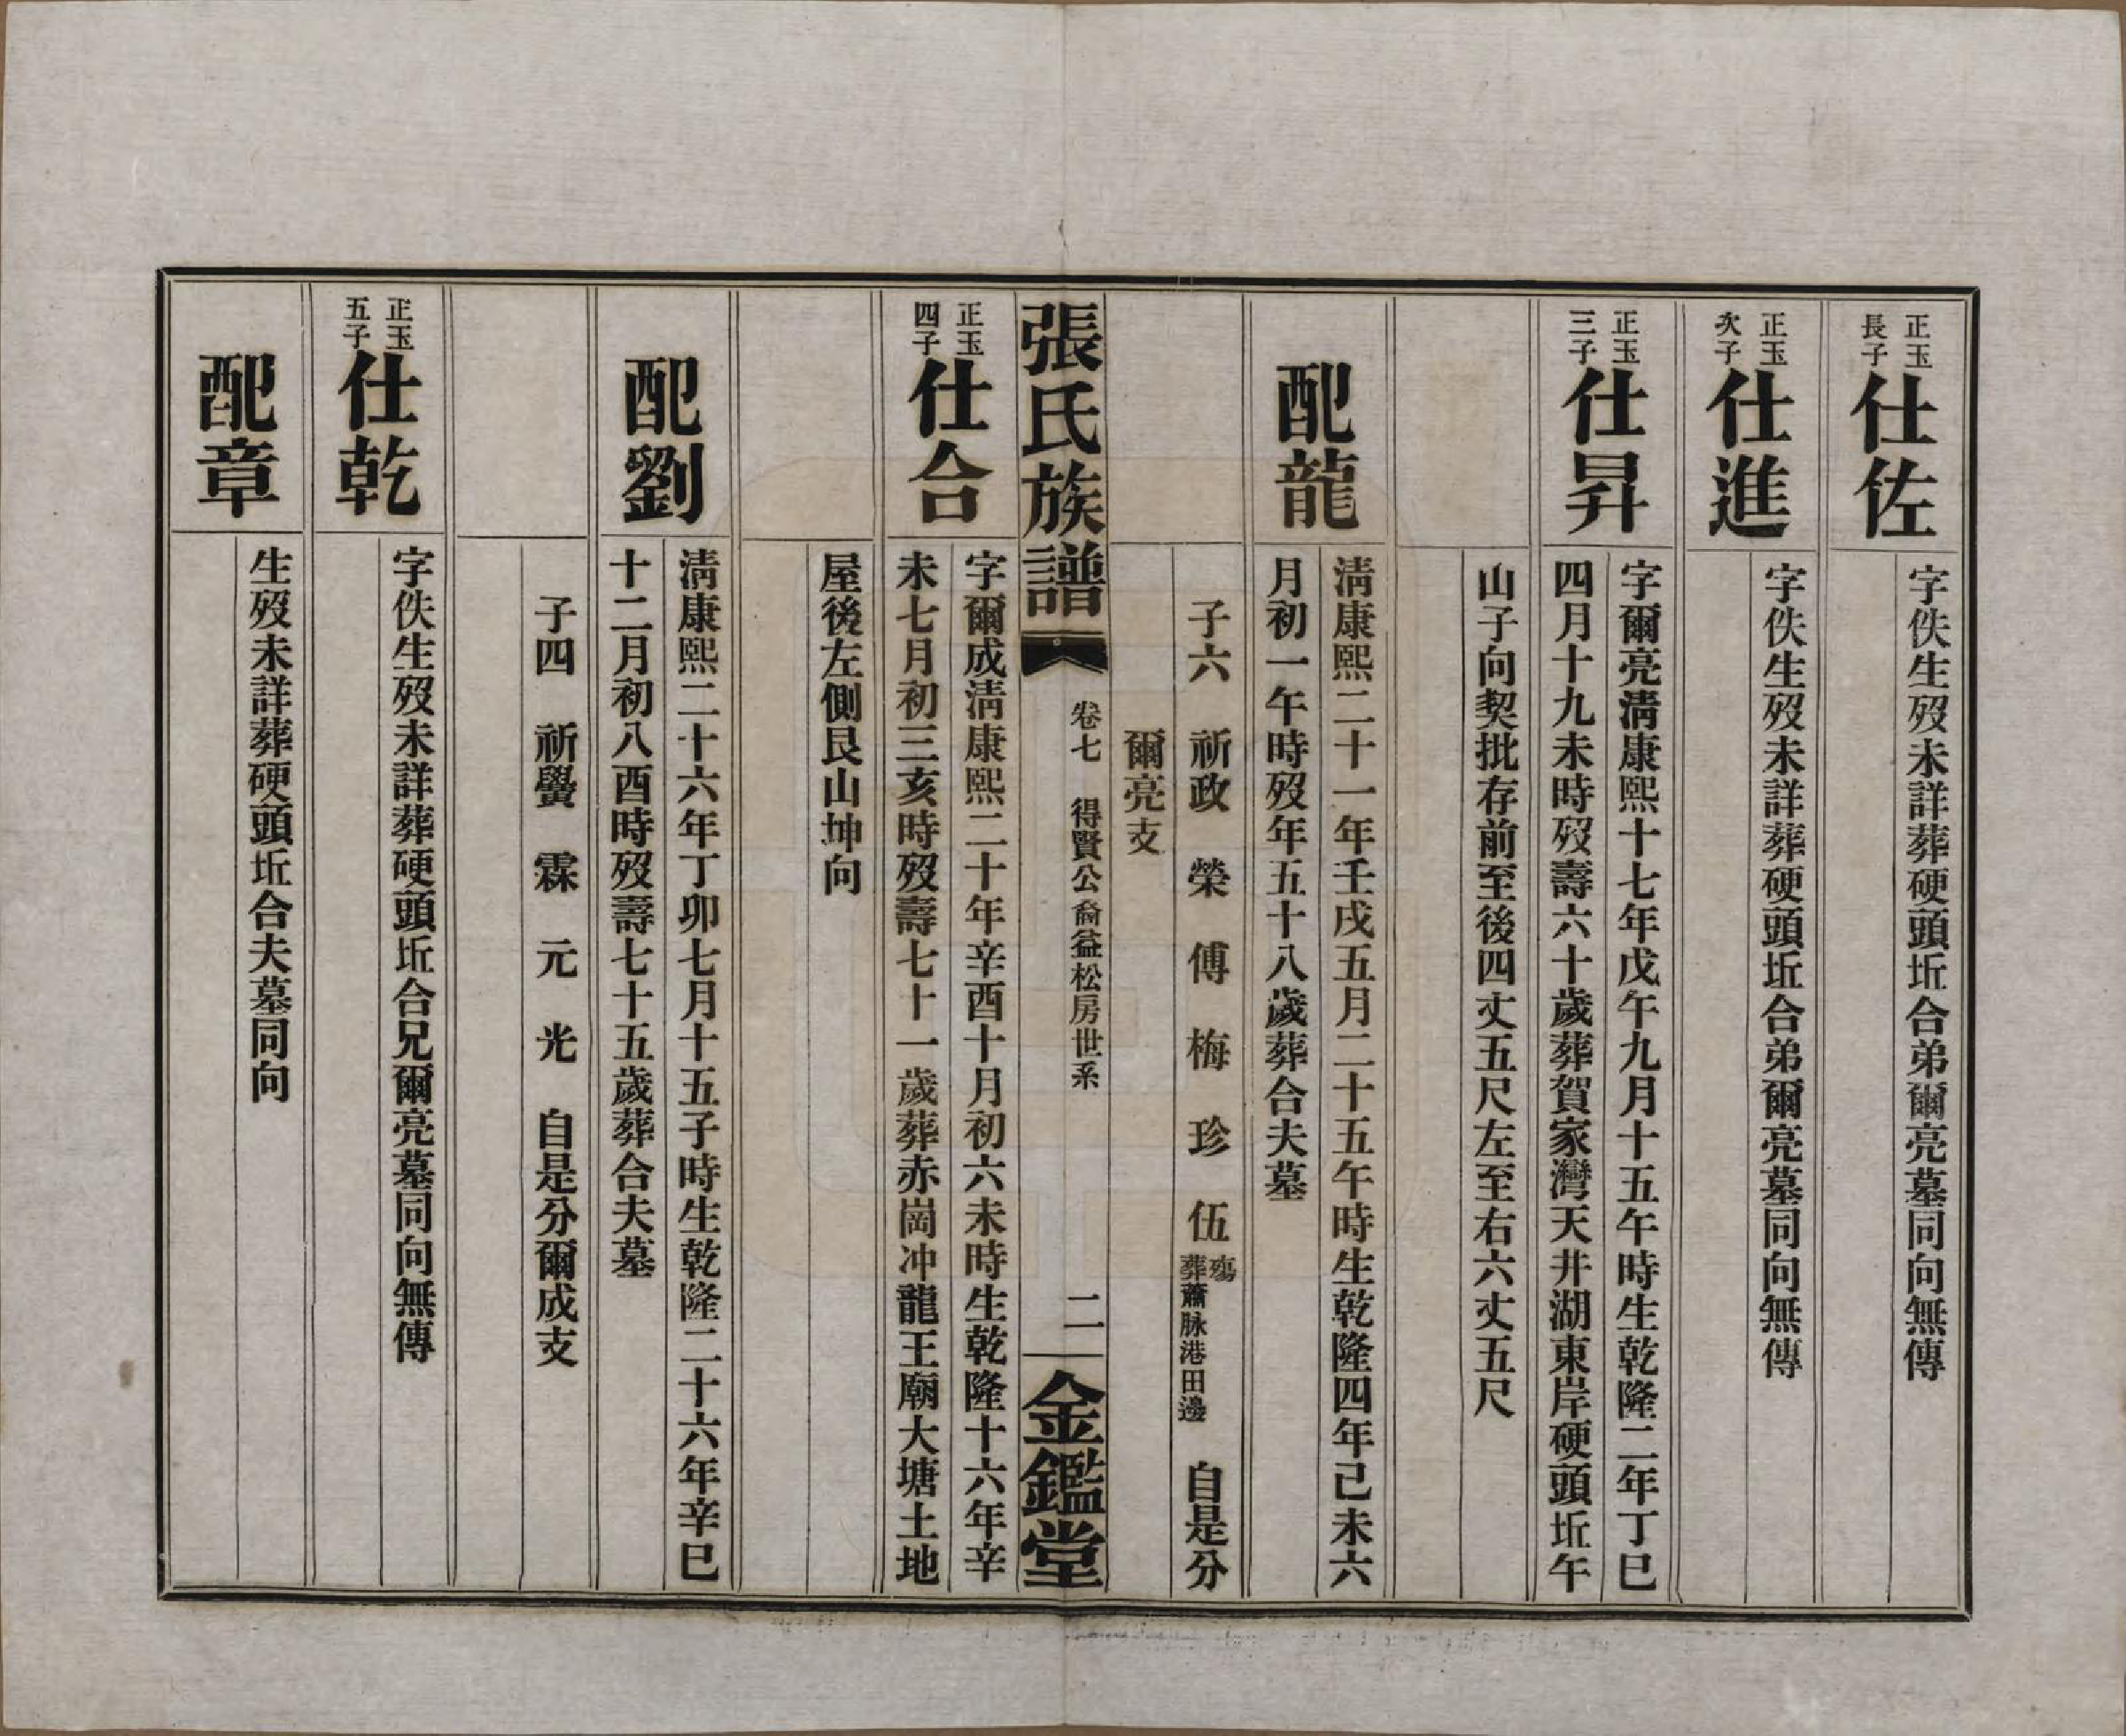 正玉
長子
仕佐
字佚生歿未詳葬硬頭坵合弟爾亮墓同向無傳
正玉
次子
仕進
字佚生歿未詳葬硬頭坵合弟爾亮墓同向無傳
正玉
三子
仕昇
字爾亮清康熙十七年戊午九月十五午時生乾隆二年丁巳
四月十九未時歿壽六十歲葬賀家灣天井湖東岸硬頭坵午
山子向契批存前至後四丈五尺左至右六丈五尺
配龍
清康熙二十一年壬戌五月二十五午時生乾隆四年己未六
月初一午時歿年五十八歲葬合夫墓
子六 祈政 榮 傅 梅 珍 伍 殤 葬蕭脉港田邊 自是分
爾亮支
張氏族譜
卷七 得賢公裔益松房世系
二
金鑑堂
正玉
四子
仕合
字爾成清康熙二十年辛酉十月初六未時生乾隆十六年辛
未七月初三亥時歿壽七十一歲葬赤崗冲龍王廟大塘土地
屋後左側艮山坤向
配劉
清康熙二十六年丁卯七月十五子時生乾隆二十六年辛巳
十二月初八酉時歿壽七十五歲葬合夫墓
子四 祈黌 霖 元 光 自是分爾成支
正玉
五子
仕乾
字佚生歿未詳葬硬頭坵合兄爾亮墓同向無傳
配章
生歿未詳葬硬頭坵合夫墓同向